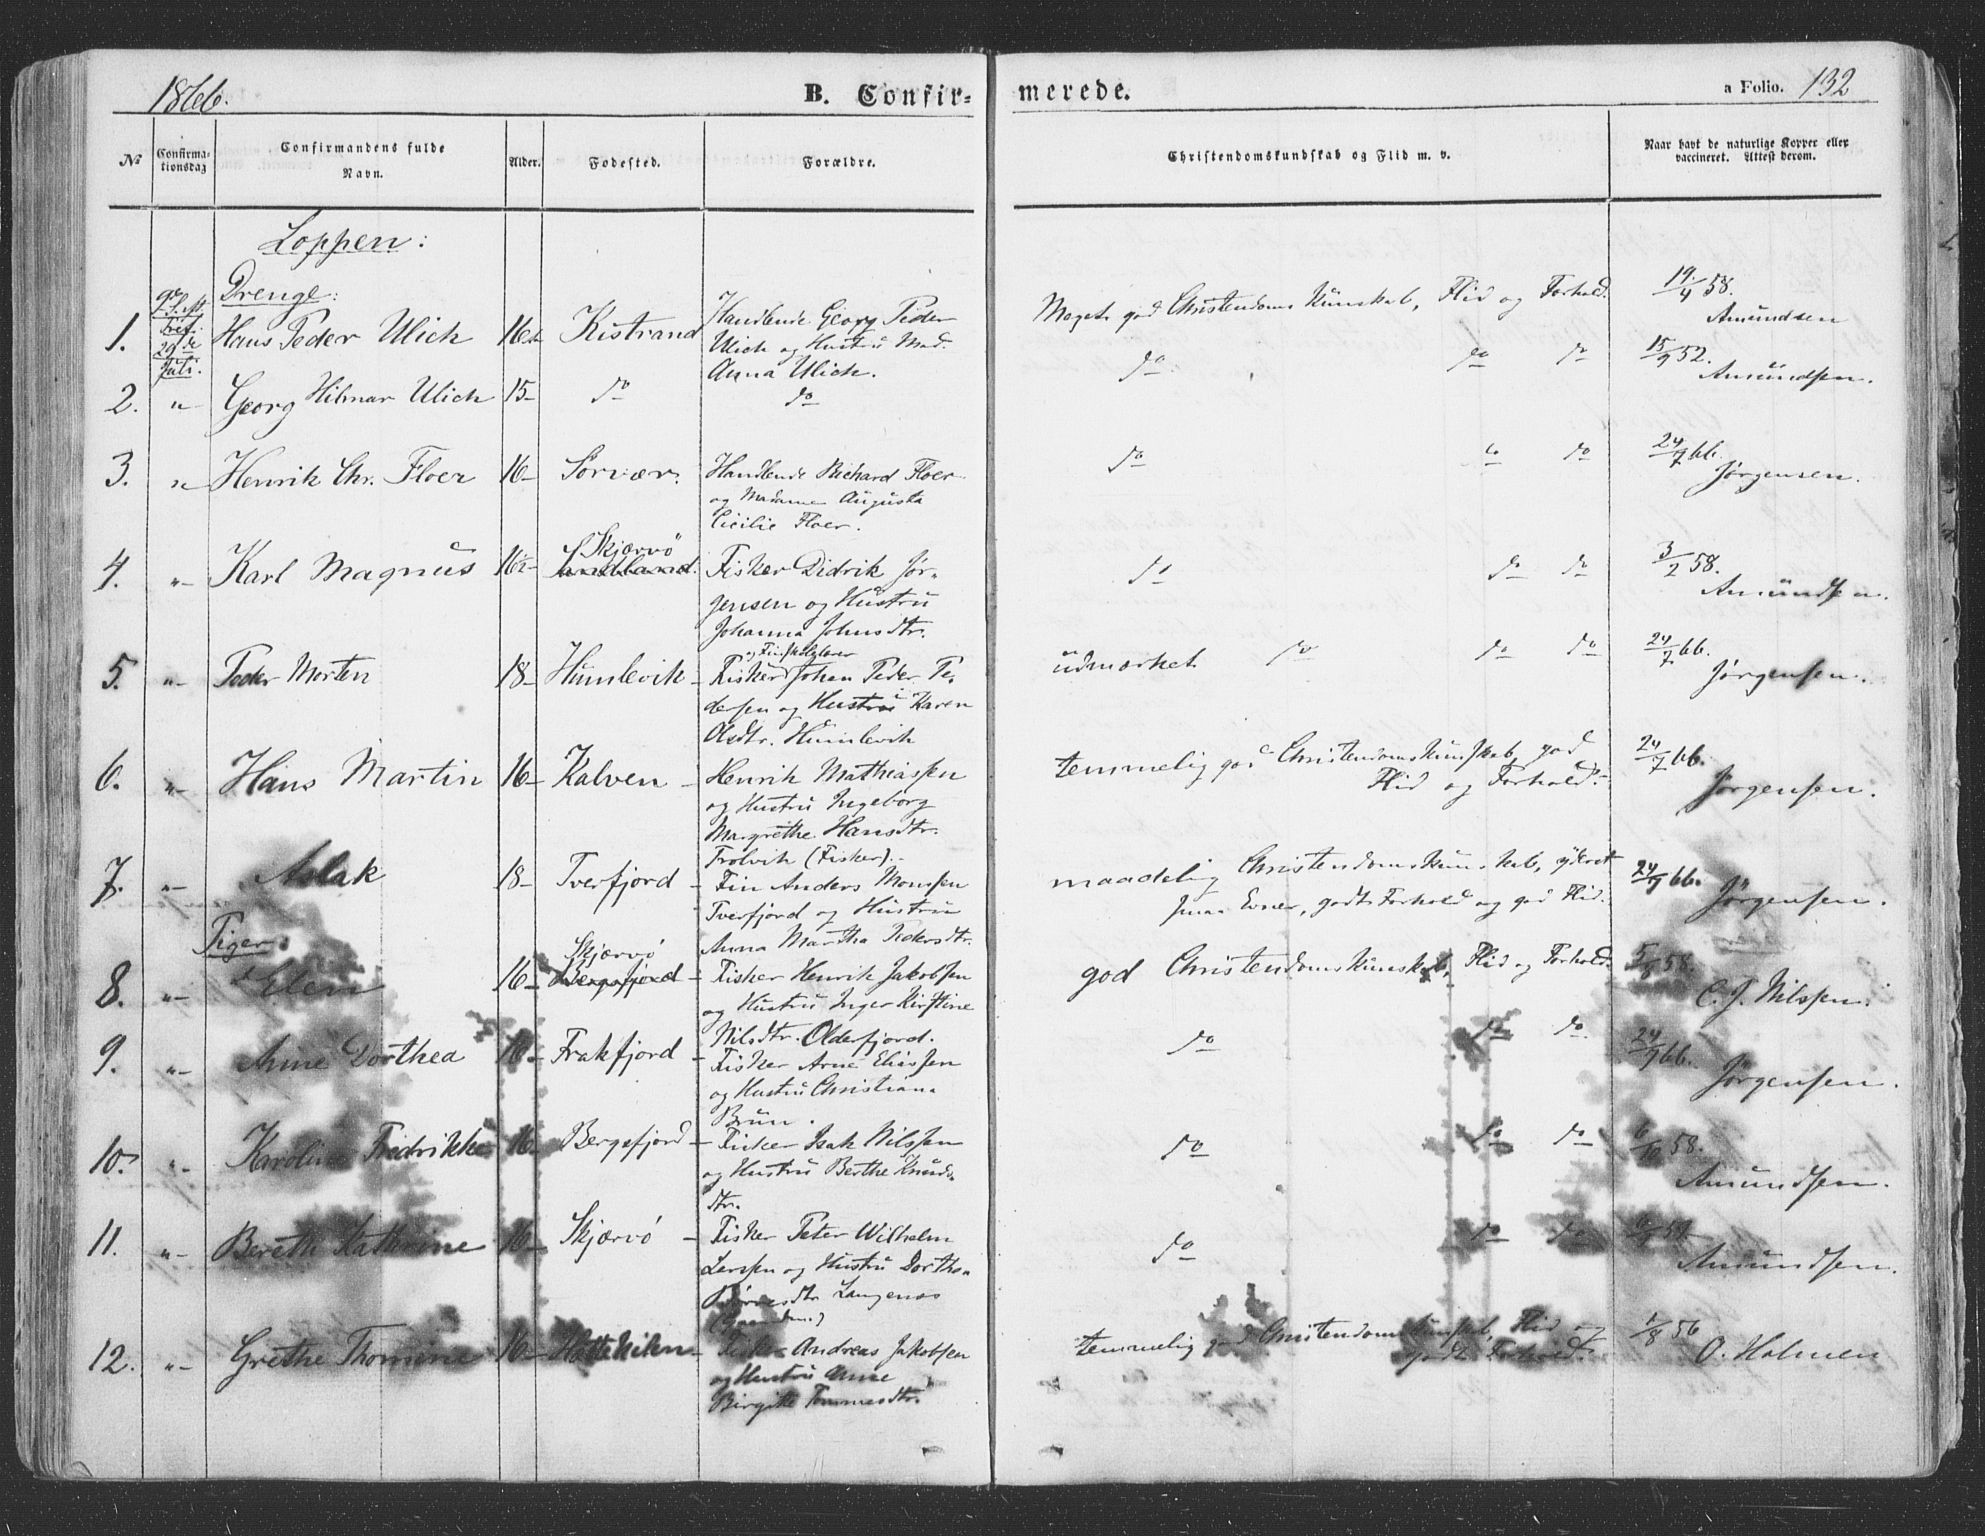 1866.
B. Confirmerede.
a Folio. 132
№
Confirmationsdag
Confirmandens fulde Navn.
Alder.
Fødested.
Forældre.
Christendomskundskab og Flid m. v.
Naar havt de naturlige Kopper eller vaccineret. Attest derom.
Loppen:
Drenge:
1. 29de Juli. Hans Peder Ulich 16 Kistrand Handlende Georg Peder
Ulich og Hustru Mad.
Anna Ulich.
Meget god Christendoms Kunskab, Flid og Forhold. 19/4 58.
Amundsen
2. " Georg Hilmar Ulich 15 do do
do do do 15/9 52.
Amundsen.
3. " Henrik Chr. Floer 16 Sørvær. Handlende Richard Floer
og Madame Augusta
Cicilie Floer.
do do do 24/7 66.
Jørgensen.
4. " Karl Magnus 16½ Skjærvö
Sandland. Fisker Didrik Jør-
gensen og Hustru
Johanna Johnsdtr.
do do do 3/2 58.
Amundsen.
5. " Peder Morten 18 Humlevik Fisker Johan Peder Pe-
dersen og Hustru Karen
Olsdtr. Humlevik
udmærket do do do 24/7 66.
Jørgensen.
6. " Hans Martin 16 Kalven Henrik Mathiassen
og Hustru Ingeborg
Margrethe Hansdtr.
Frolvik (Fisker).
temmelig god Christendomskunskab, god
Flid og Forhold. 24/7 66.
Jørgensen.
7. " Aslak 18 Tverfjord Fin Anders Monsen
Tverfjord og Hustru
Anna Martha Pedersdtr.
maadelig Christendomskunskab, yderst
smaa Evner, godt Forhold og god Flid. 24/7 66.
Jørgensen.
Piger
8. " Elen 16 Skjærvö
Bergsfjord Fisker Henrik Jakobsen
og Hustru Inger Kirstine
Nilsdtr. Olderfjord.
god Christendomskunskab, Flid og Forhold. 5/8 58.
C. J. Nilssen.
9. " Anne Dorthea 16 Frakfjord Fisker Arne Eliassen
og Hustru Christiana
Brun.
do do do 24/7 66.
Jørgensen.
10. " Karoline Fredrikke 16 Bergsfjord Fisker Isak Nilssen
og Hustru Berthe Knuds-
dtr.
do do do 6/10 58.
Amundsen.
11. " Bereth Kathrine 16 Skjærvö Fisker Peter Wilhelm
Larsen og Hustru Dorthea
Langenæs
do do do
Amundsen.
12. " Grethe Thomine 16 Fisker Andreas Jakobsen
og Hustru Anne
Birgitte Tommesdtr.
temmelig god Christendomskunskab, Flid
godt Forhold. 1/8 56
O. Holmen